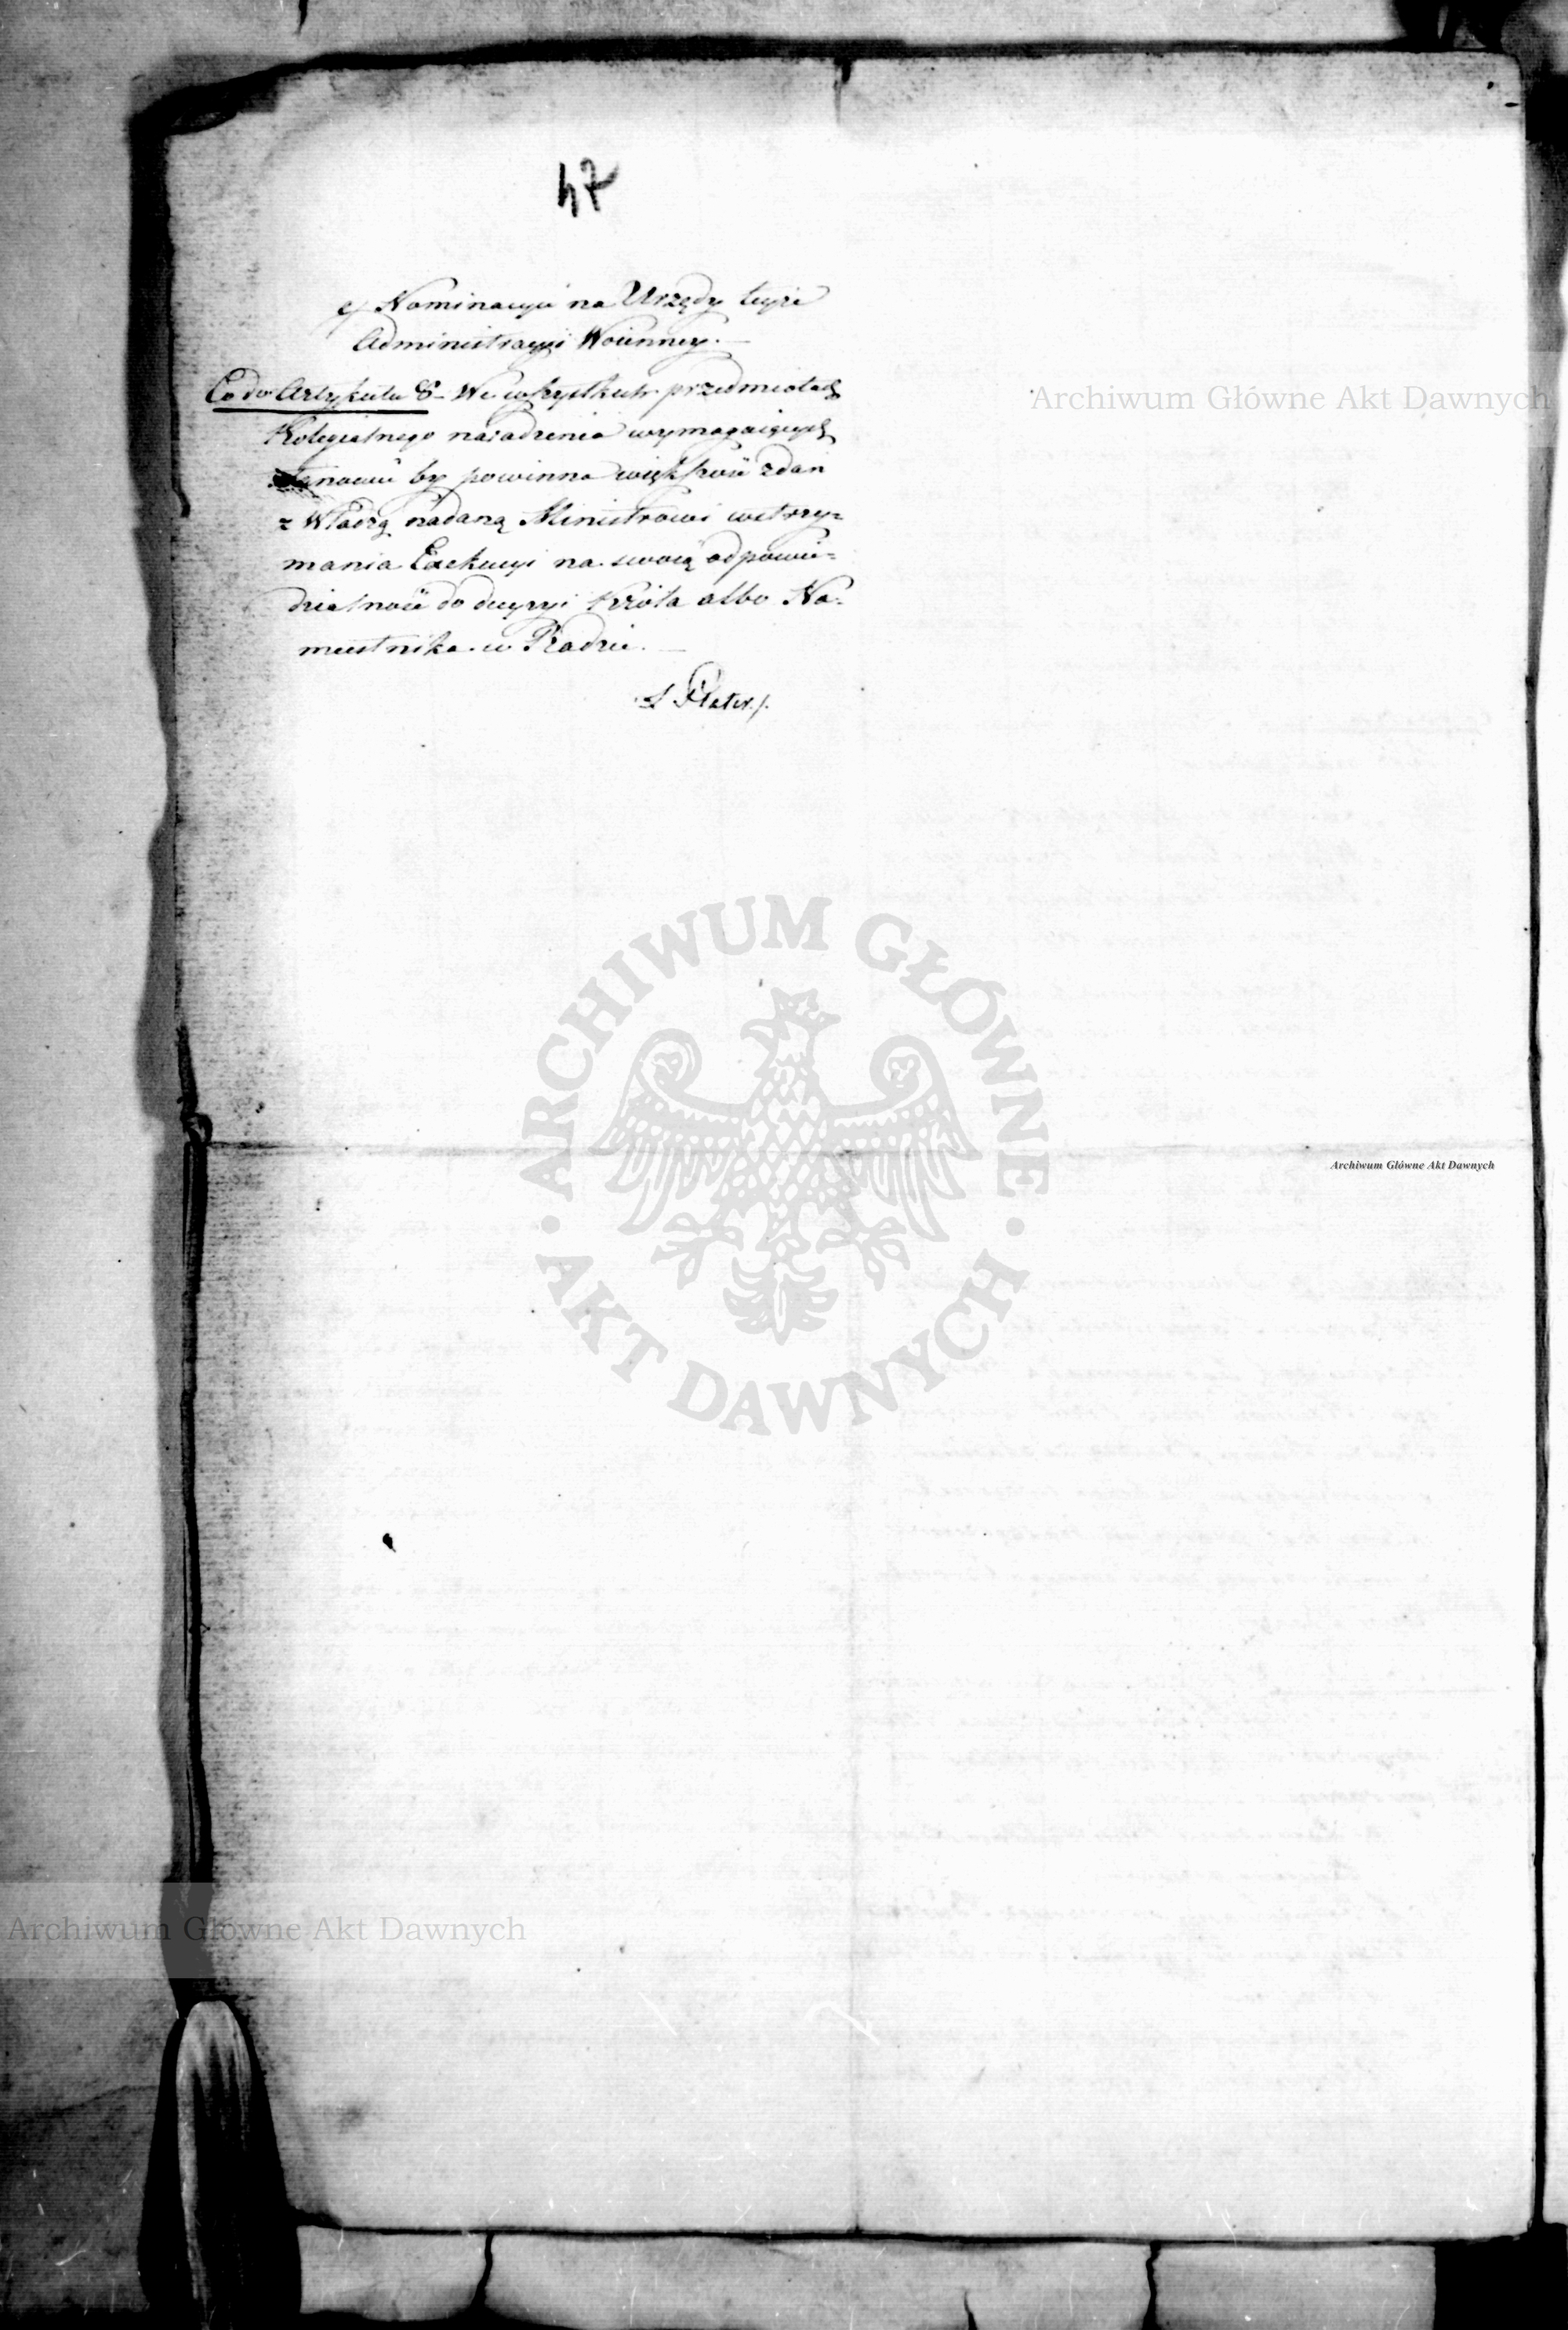 47
e/ Nominacyie na Urzędy teyże
Administracyi Woienney. —
Co do Artykułu 8 – We wszystkich przedmiotach
Kolegialnego naradzenia wymagaiących
stanowić by powinna większość zdań
z Władzą nadaną Ministrowi wstrzy=
mania Exekucyi na swoią odpowie=
dzialność do decyzyi Króla albo Na=
miestnika w Radzie. —
L Plater./.
Archiwum Główne Akt Dawnych
ARCHIWUM GŁÓWNE · AKT DAWNYCH ·
Archiwum Główne Akt Dawnych
Archiwum Główne Akt Dawnych